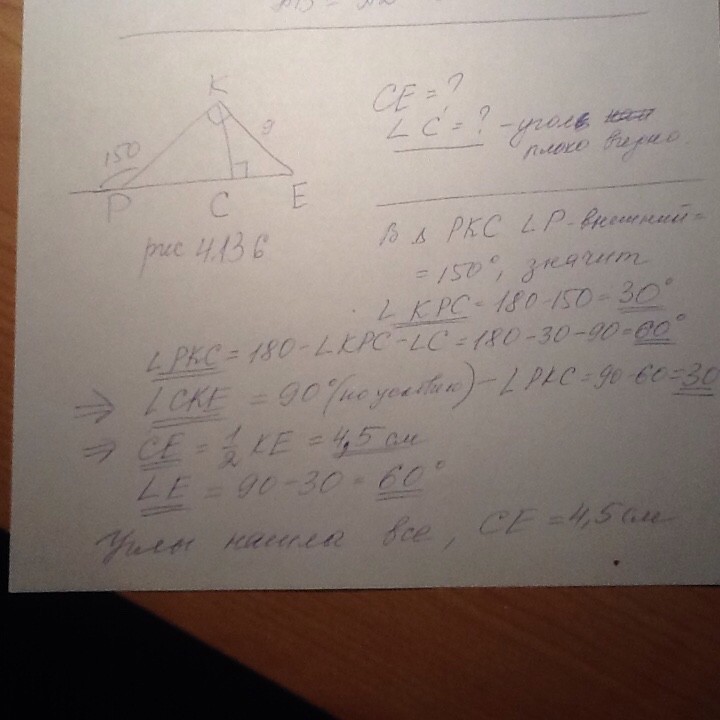 K
9
150
P C E
рис 4.136
CE = ?
∠ C = ? - уголь
плохо видно.
В Δ PKC ∠P - внешний =
= 150°, значит
∠ KPC = 180-150 = 30°
∠PKC = 180 - ∠KPC - ∠C = 180-30-90 = 60°
⇒ ∠CKE = 90° (по условию) - ∠PKC = 90-60 = 30
⇒ CE = 1/2 KE = 4,5 см
∠E = 90-30 = 60°
Углы нашла все, CE = 4,5 см